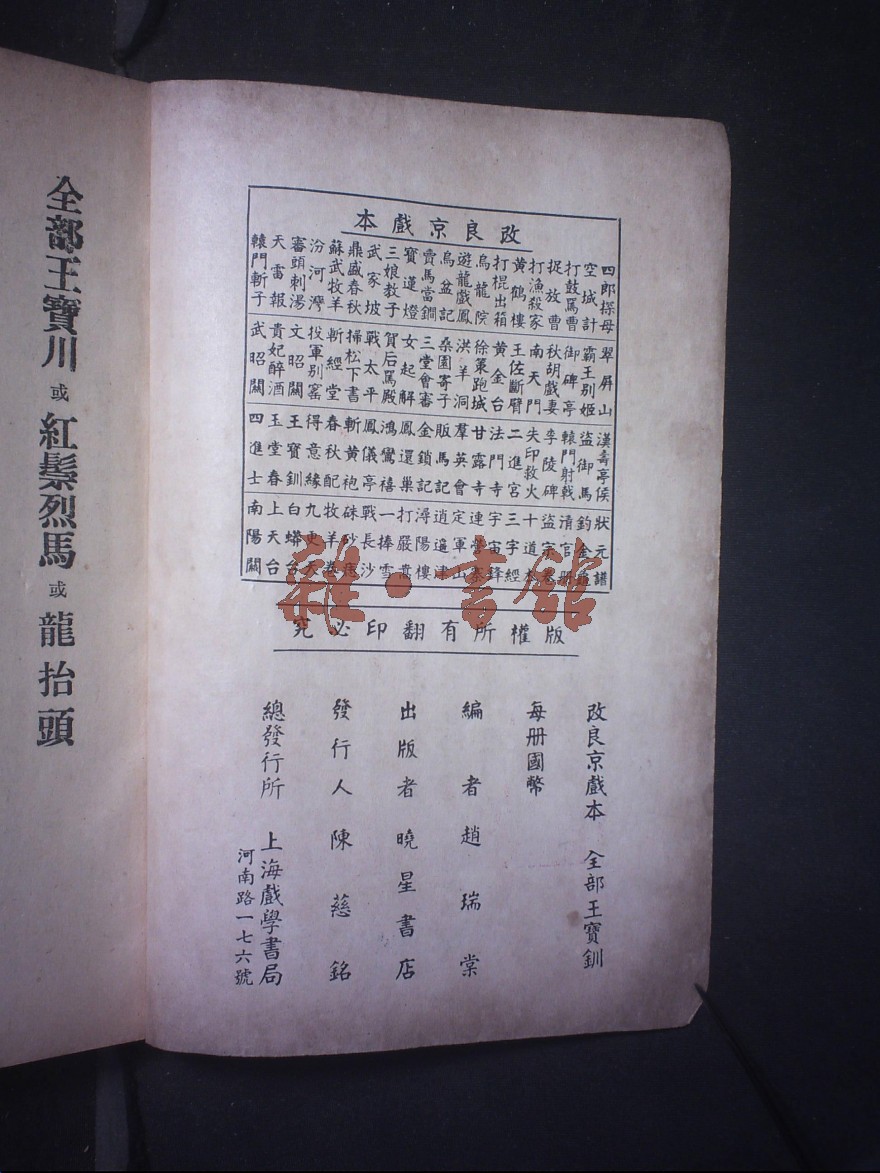 改良京戲本
四郎探母
空城計
打鼓罵曹
捉放曹
打漁殺家
黃鶴樓
打棍出箱
烏龍院
遊龍戲鳳
烏盆記
賣馬當鐧
寶蓮燈
三娘教子
武家坡
鼎盛春秋
蘇武牧羊
汾河灣
審頭刺湯
天雷報
轅門斬子
翠屏山
霸王别姬
御碑亭
秋胡戲妻
南天門
王佐斷臂
黃金台
徐策跑城
洪羊洞
桑園寄子
三堂會審
女起解
賀后罵殿
戰太平
掃松下書
斬經堂
投軍别窰
文昭關
貴妃醉酒
武昭關
漢壽亭侯
盜御馬
轅門射戟
李陵碑
失印救火
二進宮
法門寺
甘露寺
羣英會
販馬記
金鎖記
鳳還巢
鴻鸞禧
鳳儀亭
斬黃袍
春秋配
得意緣
王寶釧
玉堂春
四進士
狀元譜
釣金龜
清官册
盜宗卷
十道本
三字經
宇宙鋒
連營寨
定軍山
逍遥津
潯陽樓
打嚴嵩
一捧雪
戰長沙
硃砂痣
牧羊卷
九更天
白蟒台
上天台
南陽關
雜·書館
版權所有翻印必究
改良京戲本 全部王寶釧
每册國幣
編者趙瑞棠
出版者曉星書店
發行人陳慈銘
總發行所 上海戲學書局
河南路一七六號
全部王寶川或紅鬃烈馬或龍抬頭